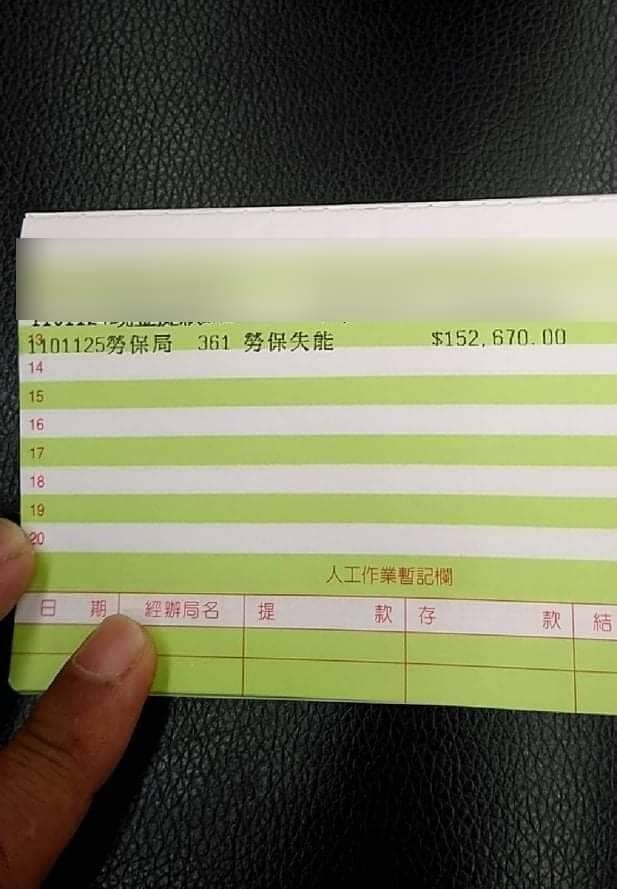 1101125勞保局 361 勞保失能 $152,670.00
13
14
15
16
17
18
19
20
人工作業暫記欄
日 期 經辦局名 提 款 存 款 結